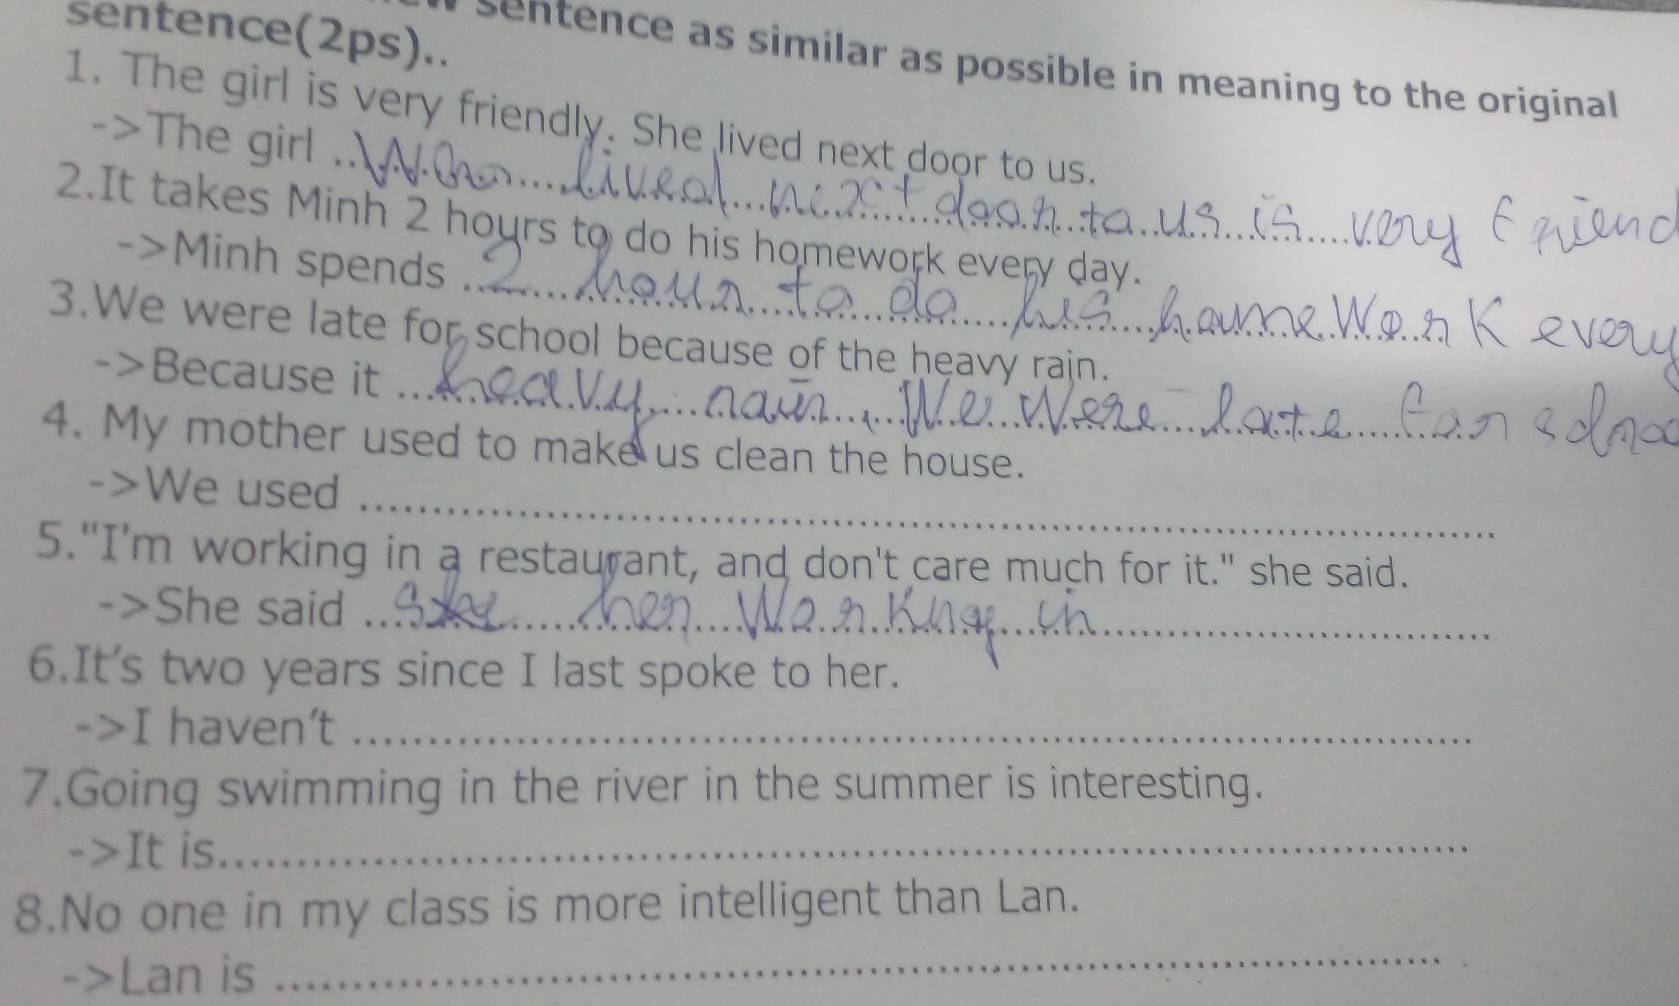 sentence as similar as possible in meaning to the original
sentence(2ps)..
1. The girl is very friendly. She lived next door to us.
->The girl .. Who lived next door to us is very friend
2.It takes Minh 2 hours to do his homework every day.
->Minh spends 2 hour to do his homeWork every
3.We were late for school because of the heavy rain.
->Because it heavy rain We Were late for
4. My mother used to make us clean the house.
->We used
5."I'm working in a restaurant, and don't care much for it." she said.
->She said her Working in
6.It's two years since I last spoke to her.
->I haven't
7.Going swimming in the river in the summer is interesting.
->It is
8.No one in my class is more intelligent than Lan.
->Lan is